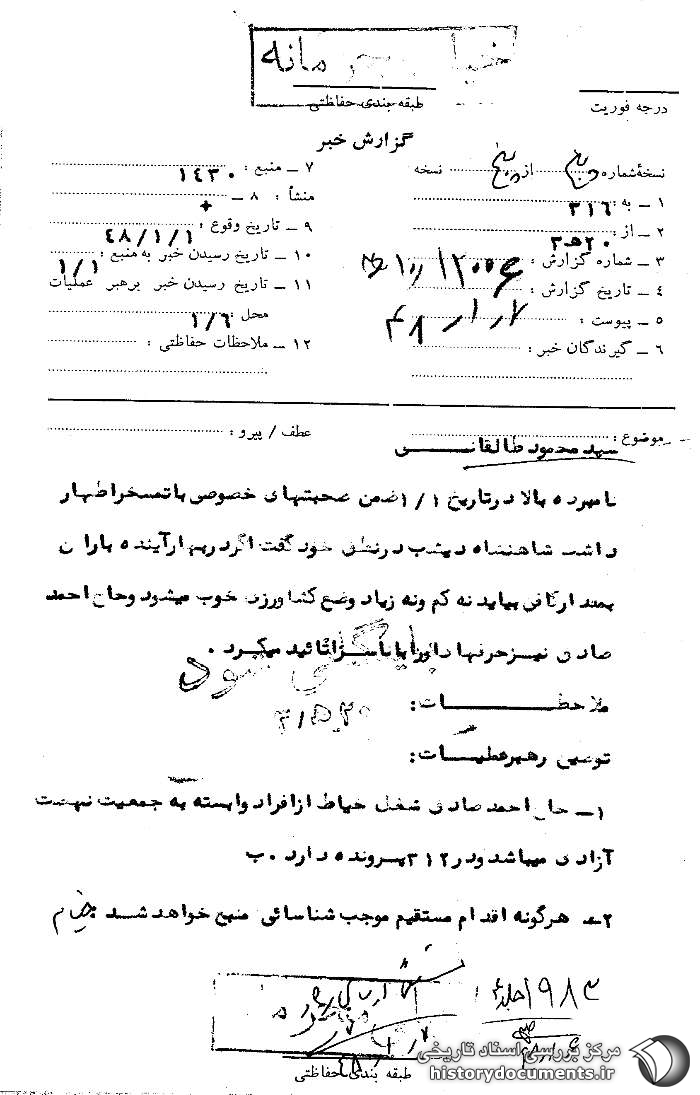 خیلی محرمانه
طبقه بندی حفاظتی
درجه فوریت
گزارش خبر
نسخهٔ شماره پنج از پنج نسخه
۱ ــ به : ۳۱۶
۲ ــ از : ۲۰ هـ ۳
۳ ــ شماره گزارش :
۴ ــ تاریخ گزارش :
۵ ــ پیوست :
۶ ــ گیرندگان خبر :
۷ ــ منبع : ۱۴۳۰
۸ ــ منشأ : +
۹ ــ تاریخ وقوع : ۴۸/۱/۱
۱۰ ــ تاریخ رسیدن خبر به منبع : ۱/۱
۱۱ ــ تاریخ رسیدن خبر برهبر عملیات
محل : ۱/۶
۱۲ ــ ملاحظات حفاظتی :
موضوع : سید محمود طالقانـــی
عطف / پیرو :
نامبرده بالا درتاریخ ۱/۱ ضمن صحبتهای خصوصی باتمسخر اظهار
داشت شاهنشاه دیشب درنطق خود گفت اگر دربهار آینده باران
بمقدار کافی بیاید نه کم ونه زیاد وضع کشاورزی خوب میشود وحاج احمد
صادقی نیـز حرفهای اورا با تائید میکـرد .
بایگانی شود
ملاحظـــــــــات:
۲۰ هـ ۳
نظریه رهبرعملیـــات:
۱ــ حاج احمد صادقی شغل خیاط ازافراد وابسته به جمعیت نهضت
آزادی میباشد ودر ۳۱۲ پرونده دارد . ب
۲ــ هرگونه اقدام مستقیم موجب شناسائی منبع خواهد شــد
۱۹۸۳
طبقه بندی حفاظتی
مرکز بررسی اسناد تاریخی
historydocuments.ir